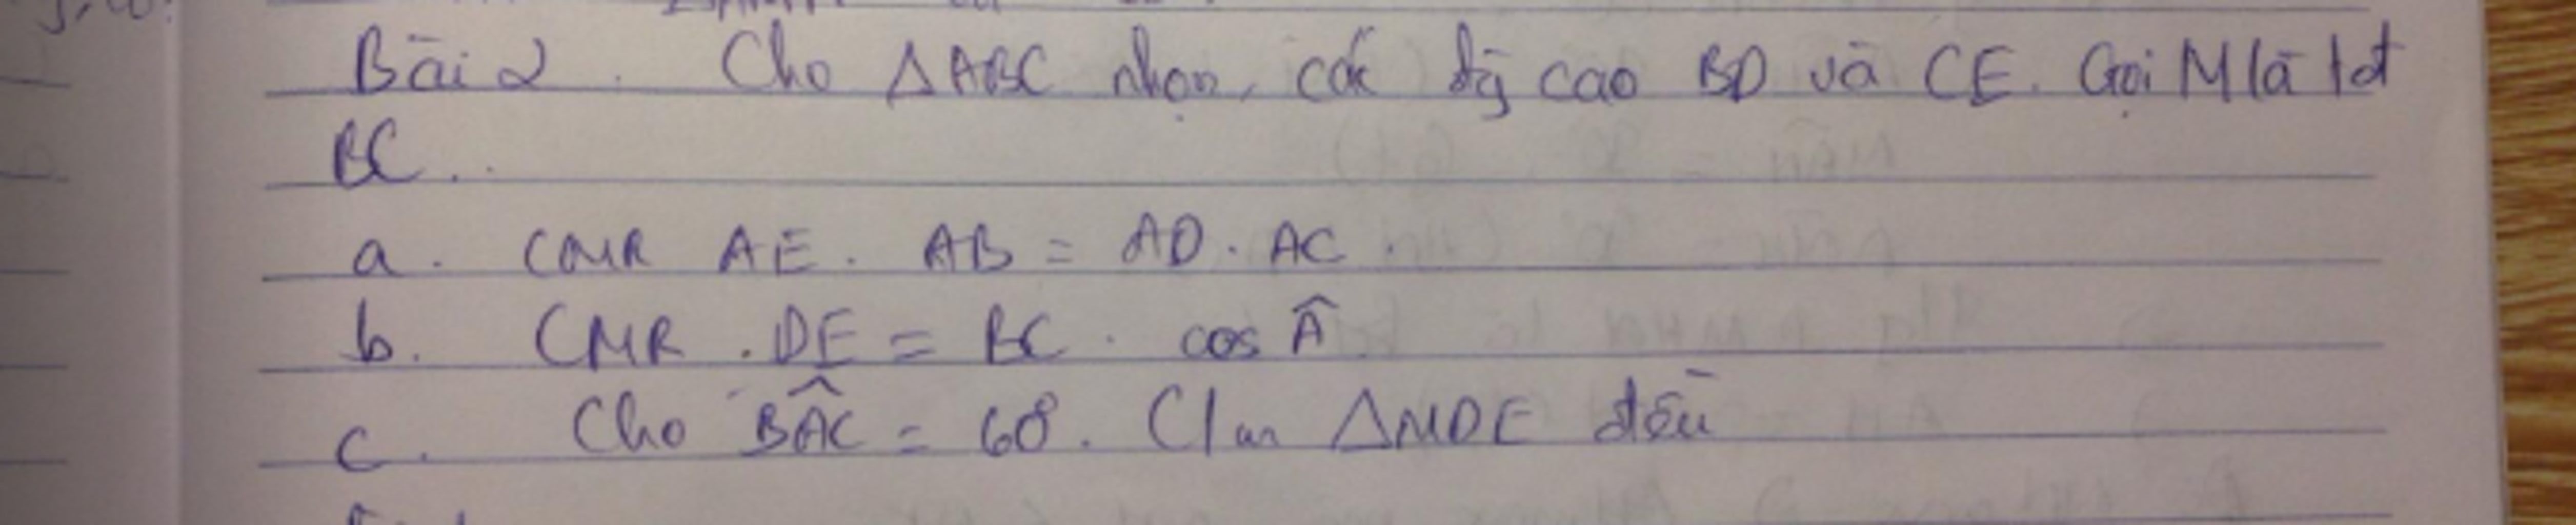 Bài 2. Cho ΔABC nhọn, các đg cao BD và CE. Gọi M là tđ
BC.
a. CMR AE. AB = AD. AC.
b. CMR. DE = BC. cos Â
c. Cho BÂC = 60°. C/m ΔMDE đều